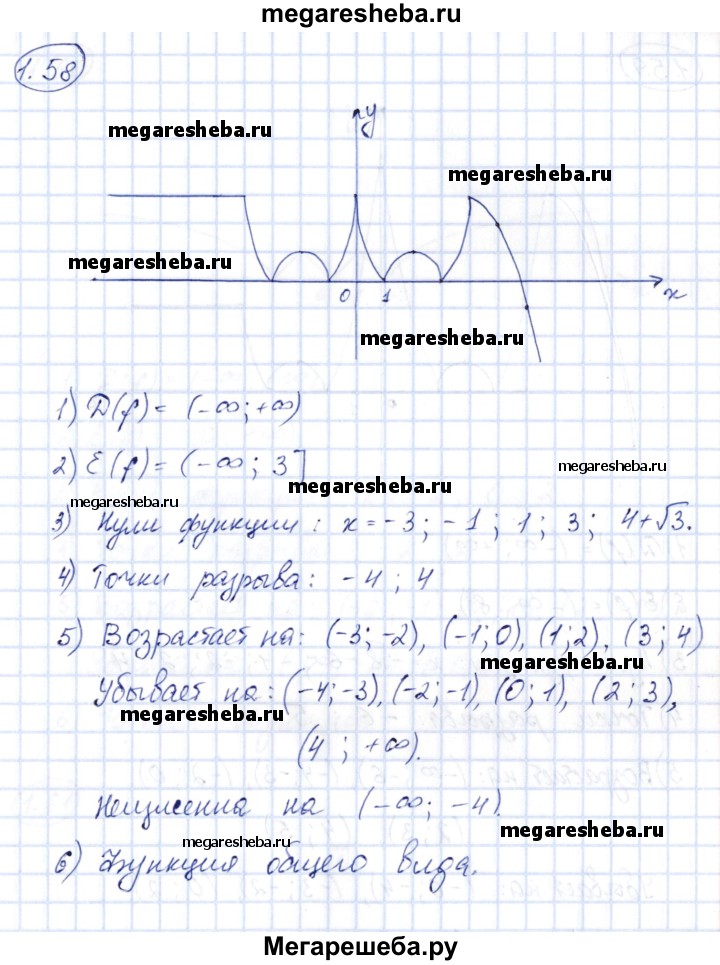 megaresheba.ru
1.58
y
megaresheba.ru
megaresheba.ru
megaresheba.ru
0 1 x
megaresheba.ru
1) D(f) = (-∞; +∞)
2) E(f) = (-∞; 3]
megaresheba.ru
megaresheba.ru
megaresheba.ru
3) Нули функции: x = -3; -1; 1; 3; 4+√3.
4) Точки разрыва: -4; 4
5) Возрастает на: (-3; -2), (-1; 0), (1; 2), (3; 4)
megaresheba.ru
Убывает на: (-4; -3), (-2; -1), (0; 1), (2; 3),
megaresheba.ru
(4; +∞).
Неизменна на (-∞; -4).
megaresheba.ru
megaresheba.ru
6) Функция общего вида.
Мегарешеба.ру